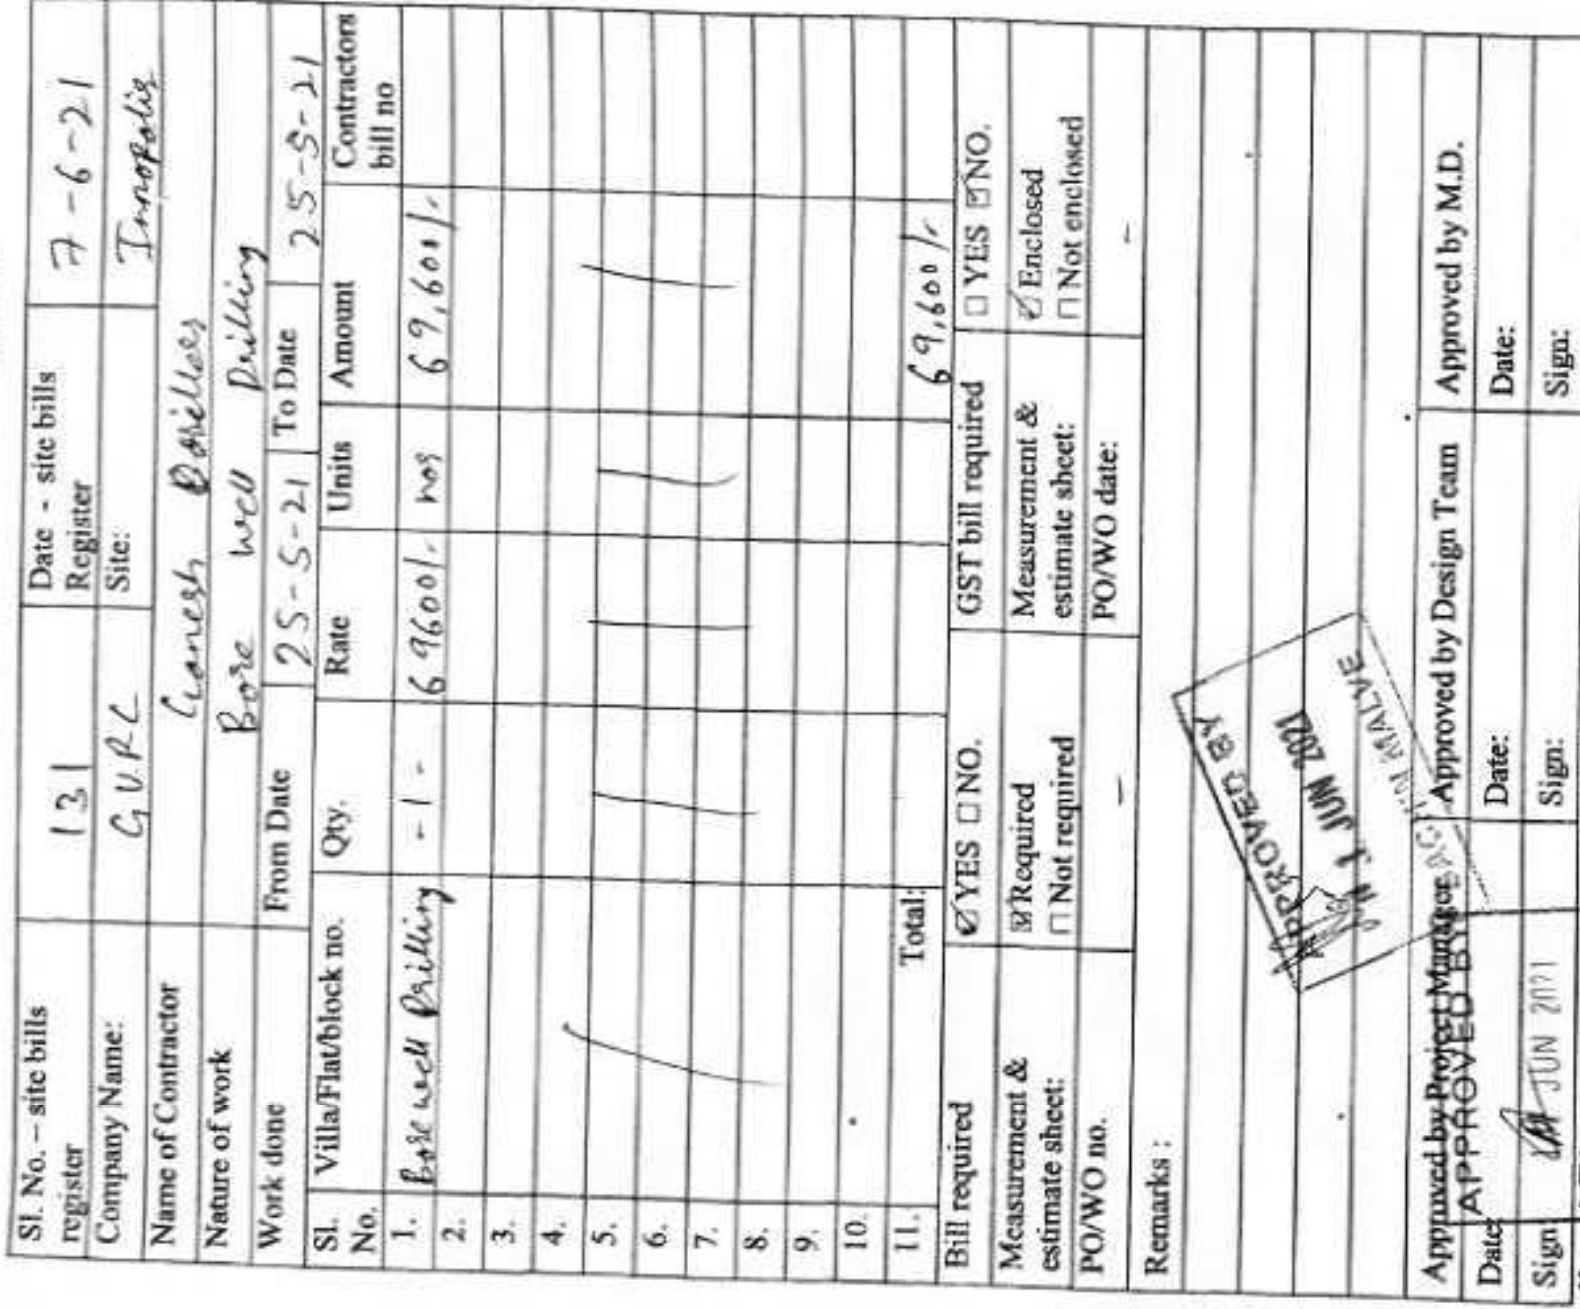 Sl. No. – site bills register 131 Date - site bills Register 7-6-21
Company Name: GVRC Site: Innopolis
Name of Contractor Ganesh Borilles
Nature of work Bore well Drilling
Work done From Date 25-5-21 To Date 25-5-21
Sl. No. Villa/Flat/block no. Qty. Rate Units Amount Contractors bill no
1. Bore well Drilling -1- 69600/- nos 69,600/-
2.
3.
4.
5.
6.
7.
8.
9.
10.
11. Total: 69,600/-
Bill required ☑ YES ☐ NO. GST bill required ☐ YES ☑ NO.
Measurement & estimate sheet: ☑ Required ☐ Not required Measurement & estimate sheet: ☑ Enclosed ☐ Not enclosed
PO/WO no. – PO/WO date: –
Remarks :
APPROVED BY
JUN 2021
MALVE
Approved by Project Manager Approved by Design Team Approved by M.D.
APPROVED BY
Date: Date: Date:
JUN 2021
Sign: Sign: Sign: